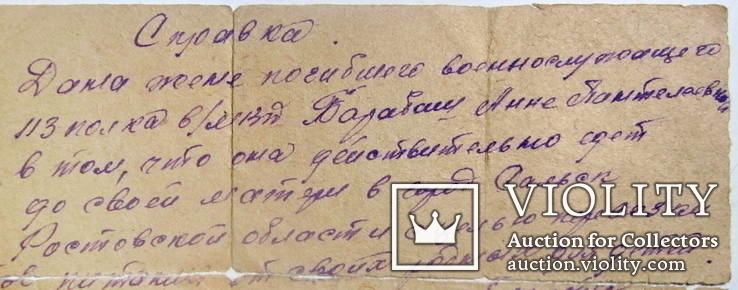 Справка.
Дана жене погибшего военнослужащего
113 полка в/МВД Барабаш Анне Пантелеевне
в том, что она действительно едет
до своей матери в город Сальск
Ростовской области с
от своих
VIOLITY
Auction for Collectors
auction.violity.com